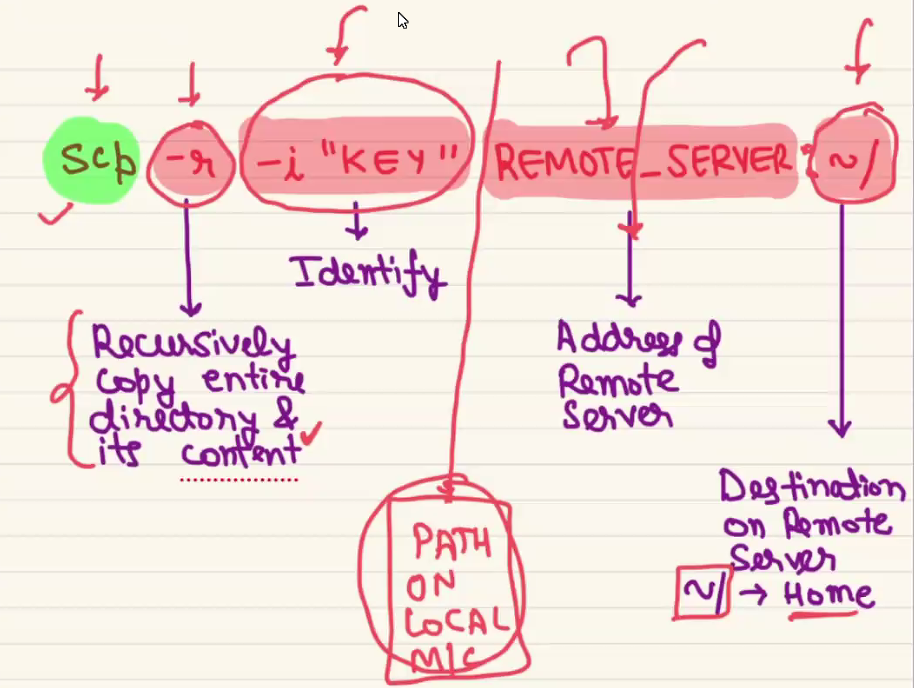 scp -r -i "KEY" REMOTE_SERVER:~/
Identify
Recursively
copy entire
directory &
its content
Address of
Remote
Server
PATH
ON
LOCAL
M/C
Destination
on Remote
Server
~/ → Home